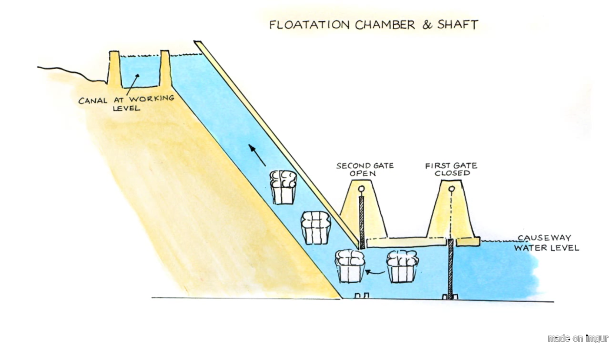 FLOATATION CHAMBER & SHAFT
CANAL AT WORKING
LEVEL
SECOND GATE
OPEN
FIRST GATE
CLOSED
CAUSEWAY
WATER LEVEL
made on imgur